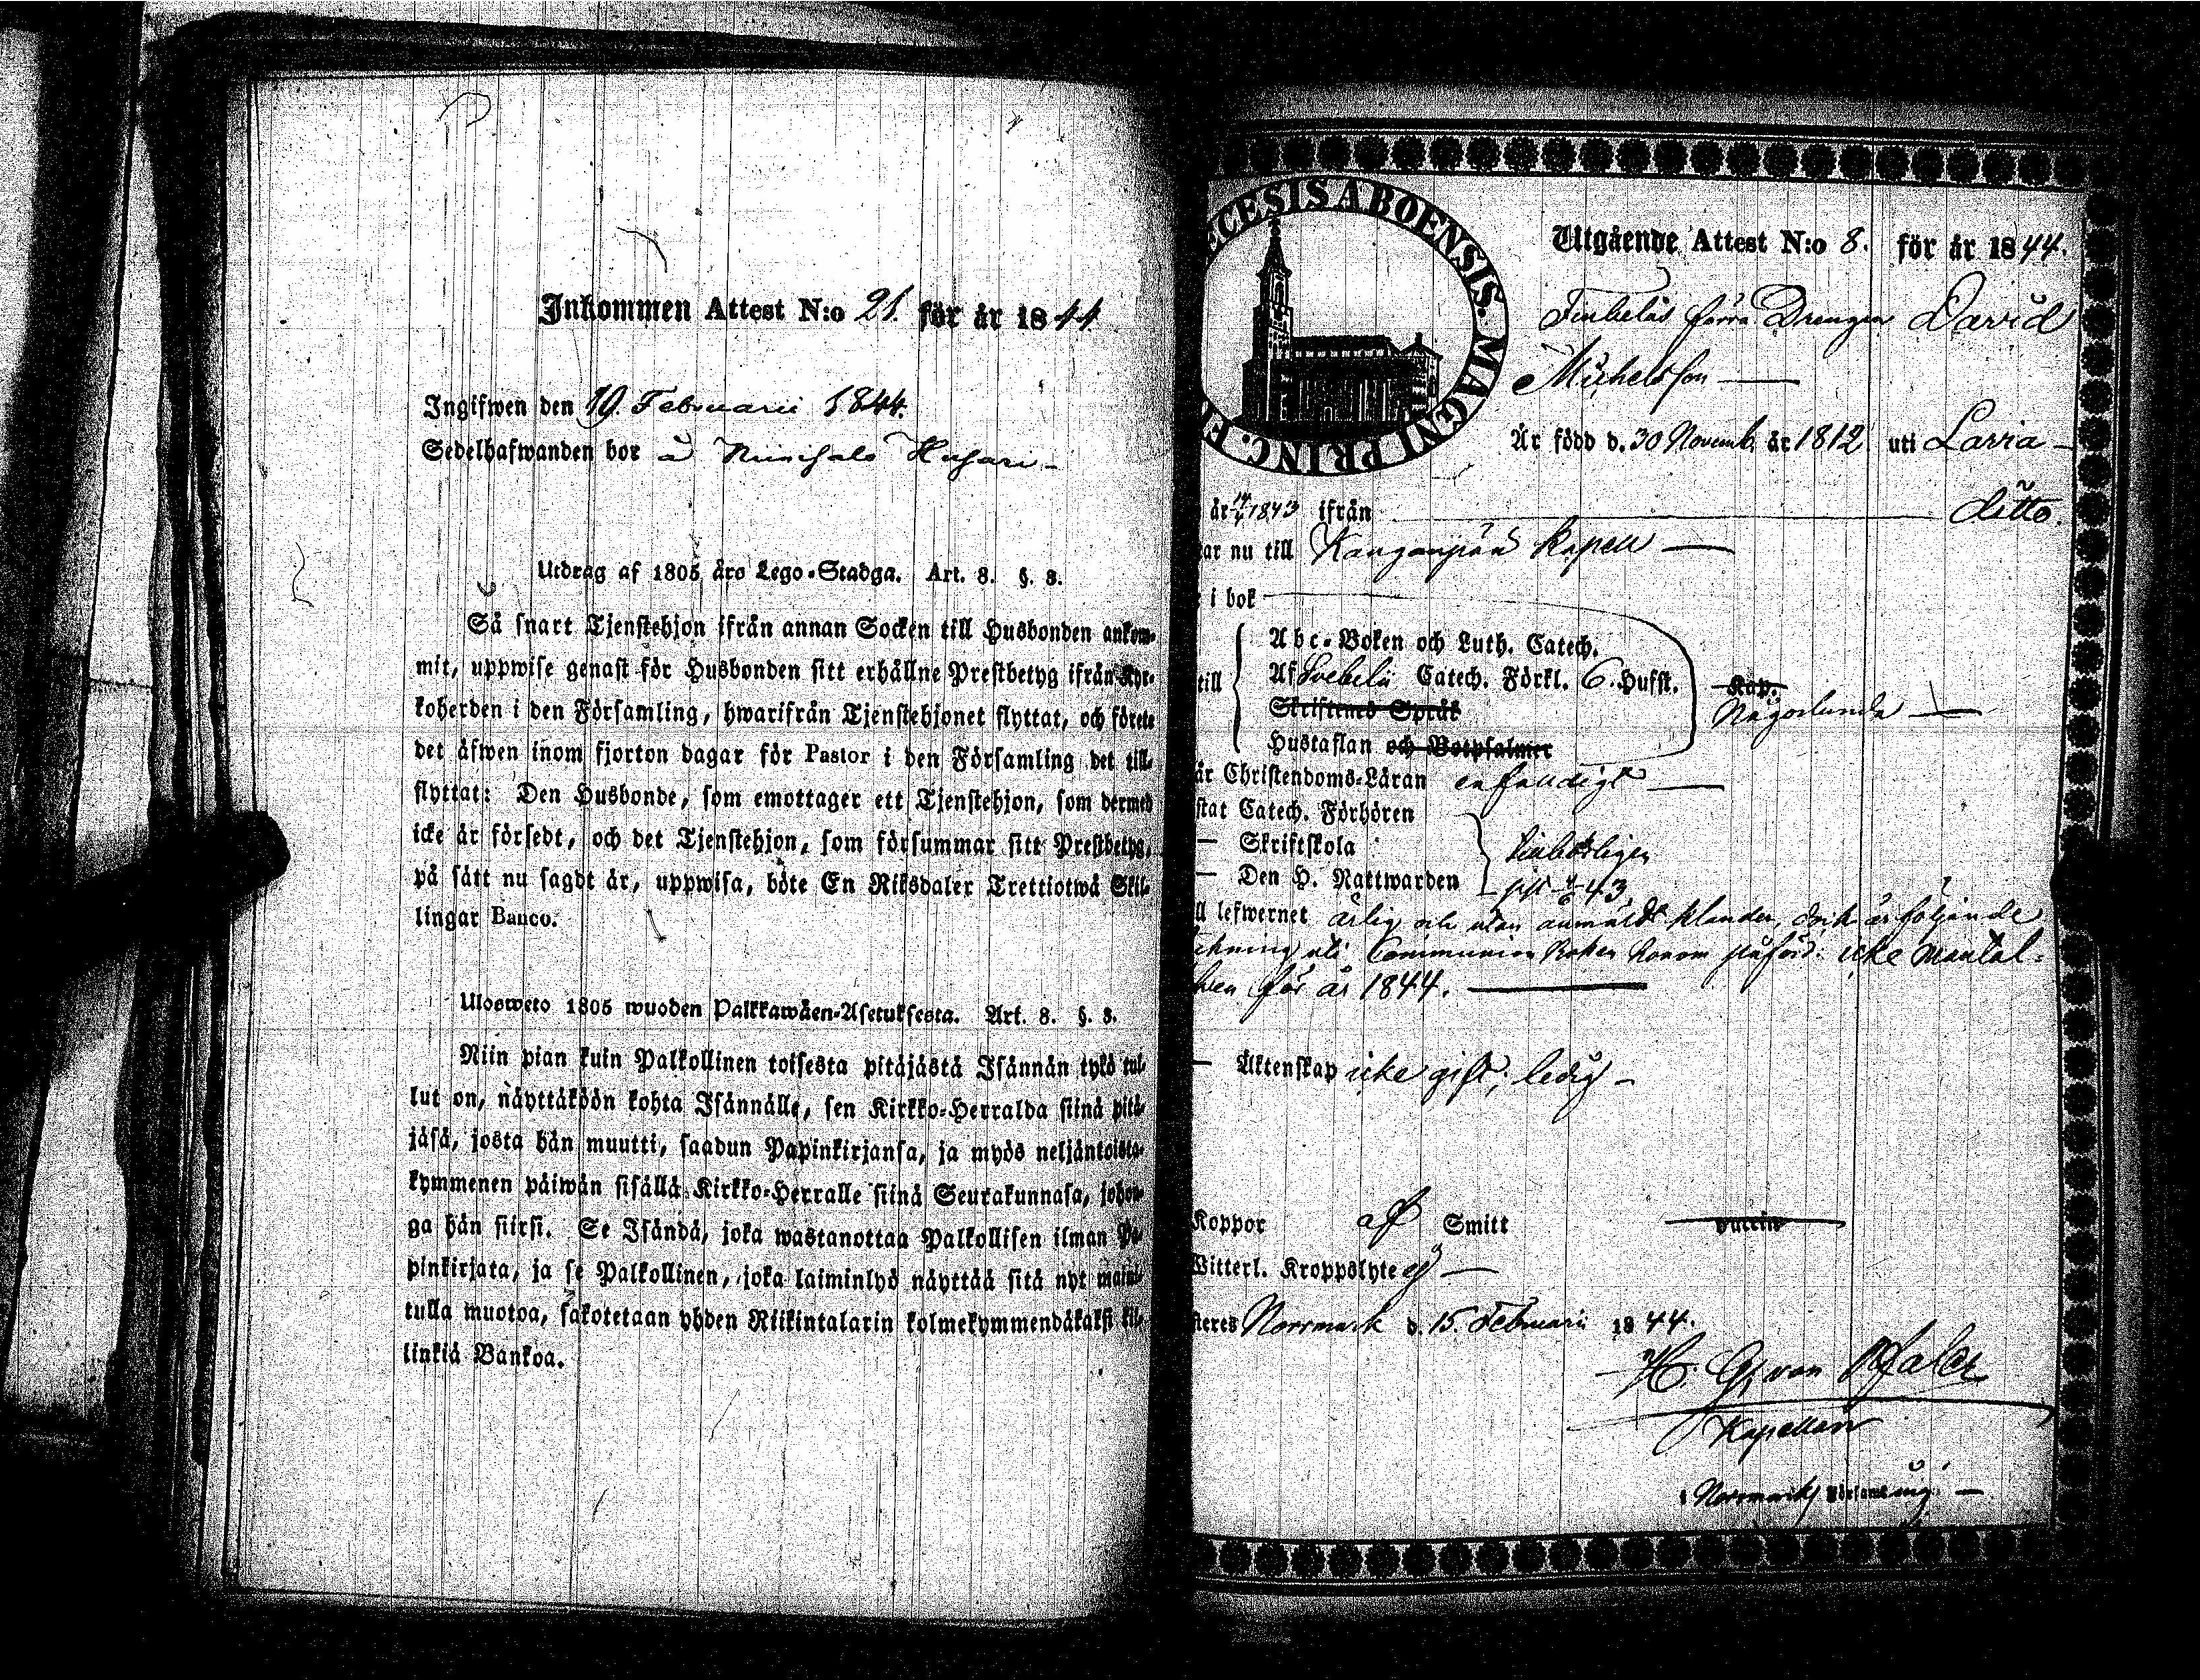 Inkommen Attest N:o 21. för år 1844
Ingifwen den 19. Februarii 1844.
Sedelhafwanden bor å Niinisalo Husari -
Utdrag af 1805 års Lego-Stadga. Art. 8. §. 3.
Så snart Tjenstehjon ifrån annan Socken till Husbonden ankom-
mit, uppwise genast för Husbonden sitt erhållne Prestbetyg ifrån Kyr-
koherden i den Församling, hwarifrån Tjenstehjonet flyttat, och förete
det äfwen inom fjorton dagar för Pastor i den Församling det till-
flyttat: Den Husbonde, som emottager ett Tjenstehjon, som dermed
icke är försedt, och det Tjenstehjon, som försummar sitt Prestbetyg,
på sätt nu sagdt är, uppwisa, böte En Riksdaler Trettiotwå Skil-
lingar Banco.
Ulosweto 1805 wuoden Palkkawäen-Asetuksesta. Art. 8. §. 3.
Niin pian kuin Palkollinen toisesta pitäjästä Isännän tykö tul-
lut on, näyttäköön kohta Isännälle, sen Kirkko-Herralda siinä pitä-
jäsä, josta hän muutti, saadun Papinkirjansa, ja myös neljäntoista-
kymmenen päiwän sisällä Kirkko-Herralle siinä Seurakunnasa, johon-
ga hän siirsi. Se Isändä, joka wastanottaa Palkollisen ilman Pa-
pinkirjata, ja se Palkollinen, joka laiminlyö näyttää sitä nyt maini-
tulla muotoa, sakotetaan yhden Riikintalarin kolmekymmendäkaksi kil-
linkiä Bankoa.
ECESIS ABOENSIS. MAGNI PRINC. F
Utgående Attest N:o 8. för år 1844.
förra Drengen David
Michelsson
Är född d. 30 Novemb. år 1812 uti Lavia -
år 1843 ifrån ditto.
ar nu till Kanganpää Kapell
i bok
Abc-Boken och Luth. Catech.
till Af Svebelii Catech. Förkl. 6. Hufst. Kap.
Skriftenes Språk Någorlunda
Hustaflan och Botpsalmer
är Christendoms-Läran enfaldigt
stat Catech. Förhören
— Skriftskola
— Den H. Nattwarden 43
ll lefwernet ärlig och utan anmäldt klander, dock är följande
ckning uti Communion boken honom påförd: icke mantal-
för år 1844.
— Äktenskap icke gift, ledig -
Koppor af Smitt
Witterl. Kroppslyte ej
steres Norrmark d. 15. Februarii 1844.
H. G. von Pfaler
Kapellan
i Norrmarks Församling